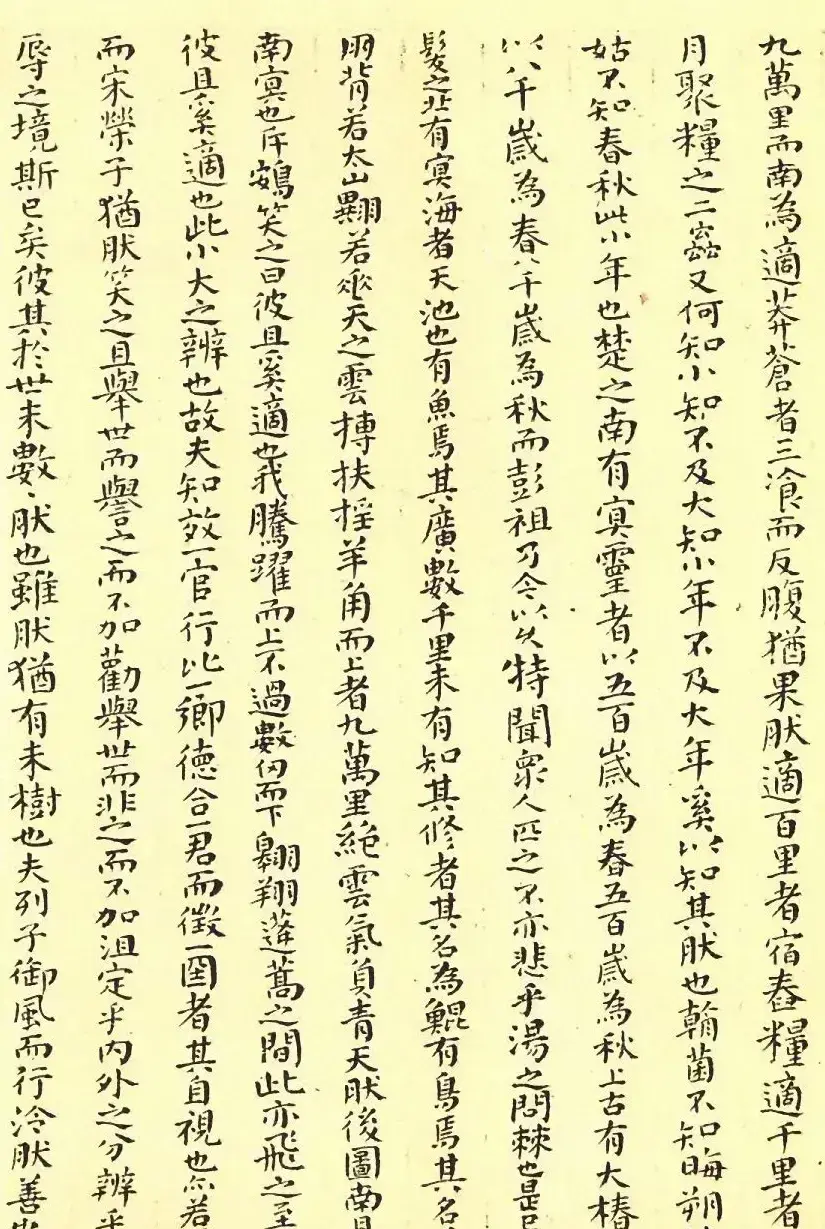 九萬里而南為適莽蒼者三飡而反腹猶果肰適百里者宿舂糧適千里者
月聚糧之二蟲又何知小知不及大知小年不及大年奚以知其肰也朝菌不知晦朔
姑不知春秋此小年也楚之南有冥靈者以五百歲為春五百歲為秋上古有大椿
以八千歲為春八千歲為秋而彭祖乃今以久特聞眾人匹之不亦悲乎湯之問棘也是已
髮之北有冥海者天池也有魚焉其廣數千里未有知其修者其名為鯤有鳥焉其名
朋背若太山翼若垂天之雲摶扶揺羊角而上者九萬里絕雲氣負青天肰後圖南且
南冥也斥鴳笑之曰彼且奚適也我騰躍而上不過數仞而下翱翔蓬蒿之間此亦飛之至
彼且奚適也此小大之辨也故夫知效一官行比一鄉德合一君而徵一國者其自視也亦若
而宋榮子猶肰笑之且舉世而譽之而不加勸舉世而非之而不加沮定乎內外之分辨乎
辱之境斯已矣彼其於世未數〻肰也雖肰猶有未樹也夫列子御風而行泠肰善也